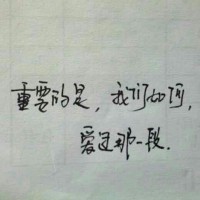 重要的是，我们如何，
爱过那一段.